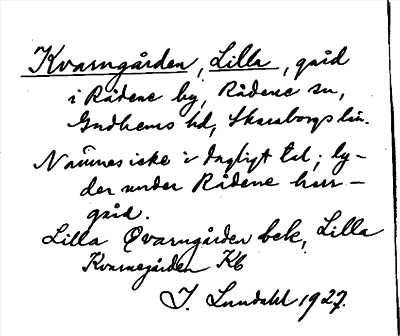 Kvarngården, Lilla, gård
i Rådene by, Rådene sn,
Gudhems hd, Skaraborgs län.
Nämnes icke i dagligt tal; ly-
der under Rådene herr-
gård.
Lilla Qvarngården bek, Lilla
Kvarnegården Kb
J. Lundahl 1927.